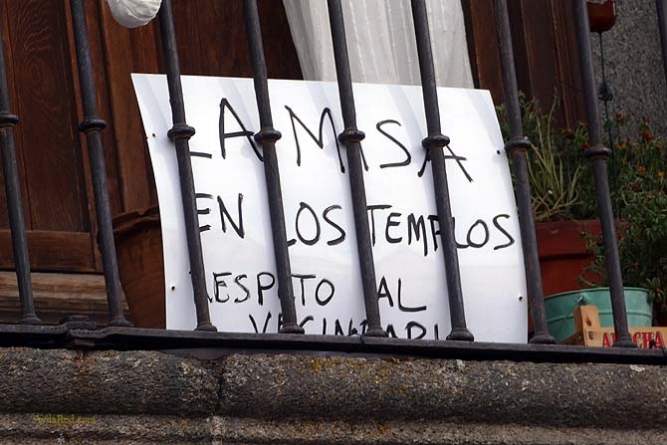 LA MISA
EN LOS TEMPLOS
RESPETO AL
VECINDARIO